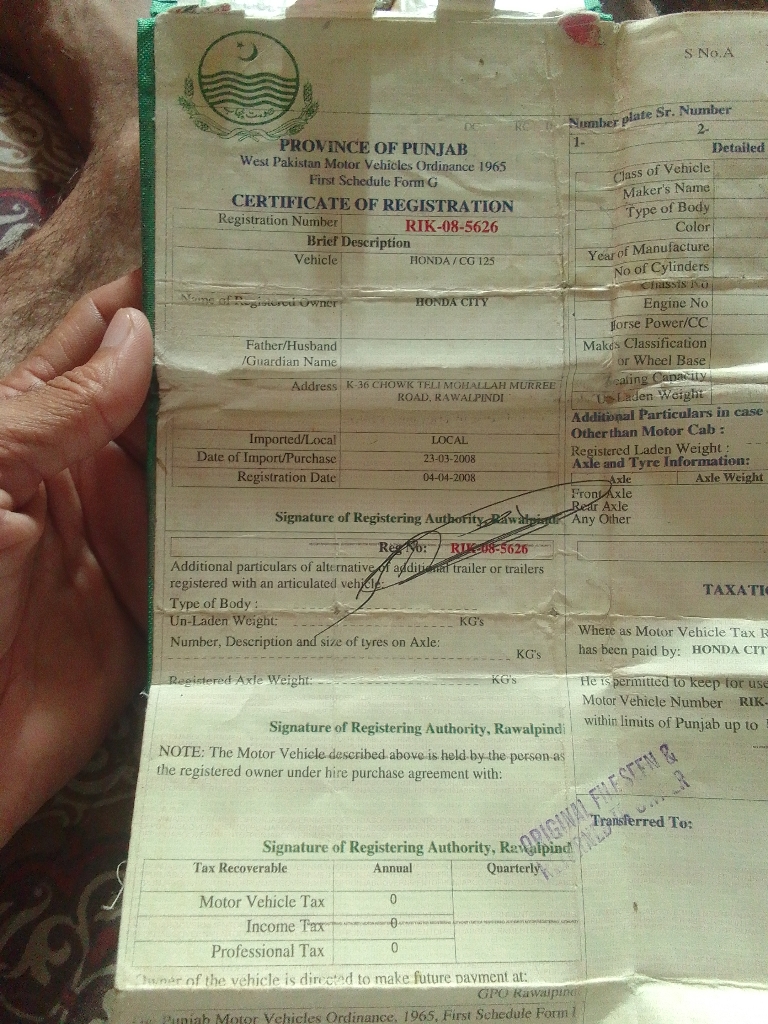 حکومت پنجاب
PROVINCE OF PUNJAB
West Pakistan Motor Vehicles Ordinance 1965
First Schedule Form G
CERTIFICATE OF REGISTRATION
Registration Number RIK-08-5626
Brief Description
Vehicle HONDA / CG 125
Name of Registered Owner HONDA CITY
Father/Husband
/Guardian Name
Address K-36 CHOWK TELI MOHALLAH MURREE
ROAD, RAWALPINDI
Imported/Local LOCAL
Date of Import/Purchase 23-03-2008
Registration Date 04-04-2008
Signature of Registering Authority, Rawalpindi
Reg No: RIK-08-5626
Additional particulars of alternative of additional trailer or trailers
registered with an articulated vehicle:
Type of Body :
Un-Laden Weight: KG's
Number, Description and size of tyres on Axle:
KG's
Registered Axle Weight: KG's
Signature of Registering Authority, Rawalpindi
NOTE: The Motor Vehicle described above is held by the person as
the registered owner under hire purchase agreement with:
Signature of Registering Authority, Rawalpindi
Tax Recoverable Annual Quarterly
Motor Vehicle Tax 0
Income Tax 0
Professional Tax 0
Owner of the vehicle is directed to make future payment at:
GPO Rawalpindi
Punjab Motor Vehicles Ordinance, 1965, First Schedule Form
S No.A
Number plate Sr. Number
1- 2-
Detailed
Class of Vehicle
Maker's Name
Type of Body
Color
Year of Manufacture
No of Cylinders
Chassis No
Engine No
Horse Power/CC
Makers Classification
or Wheel Base
Seating Capacity
Un-Laden Weight
Additional Particulars in case
Other than Motor Cab :
Registered Laden Weight :
Axle and Tyre Information:
Axle Axle Weight
Front Axle
Rear Axle
Any Other
TAXATI
Where as Motor Vehicle Tax R
has been paid by: HONDA CIT
He is permitted to keep for use
Motor Vehicle Number RIK-
within limits of Punjab up to
ORIGINAL FILE SEEN &
Transferred To: